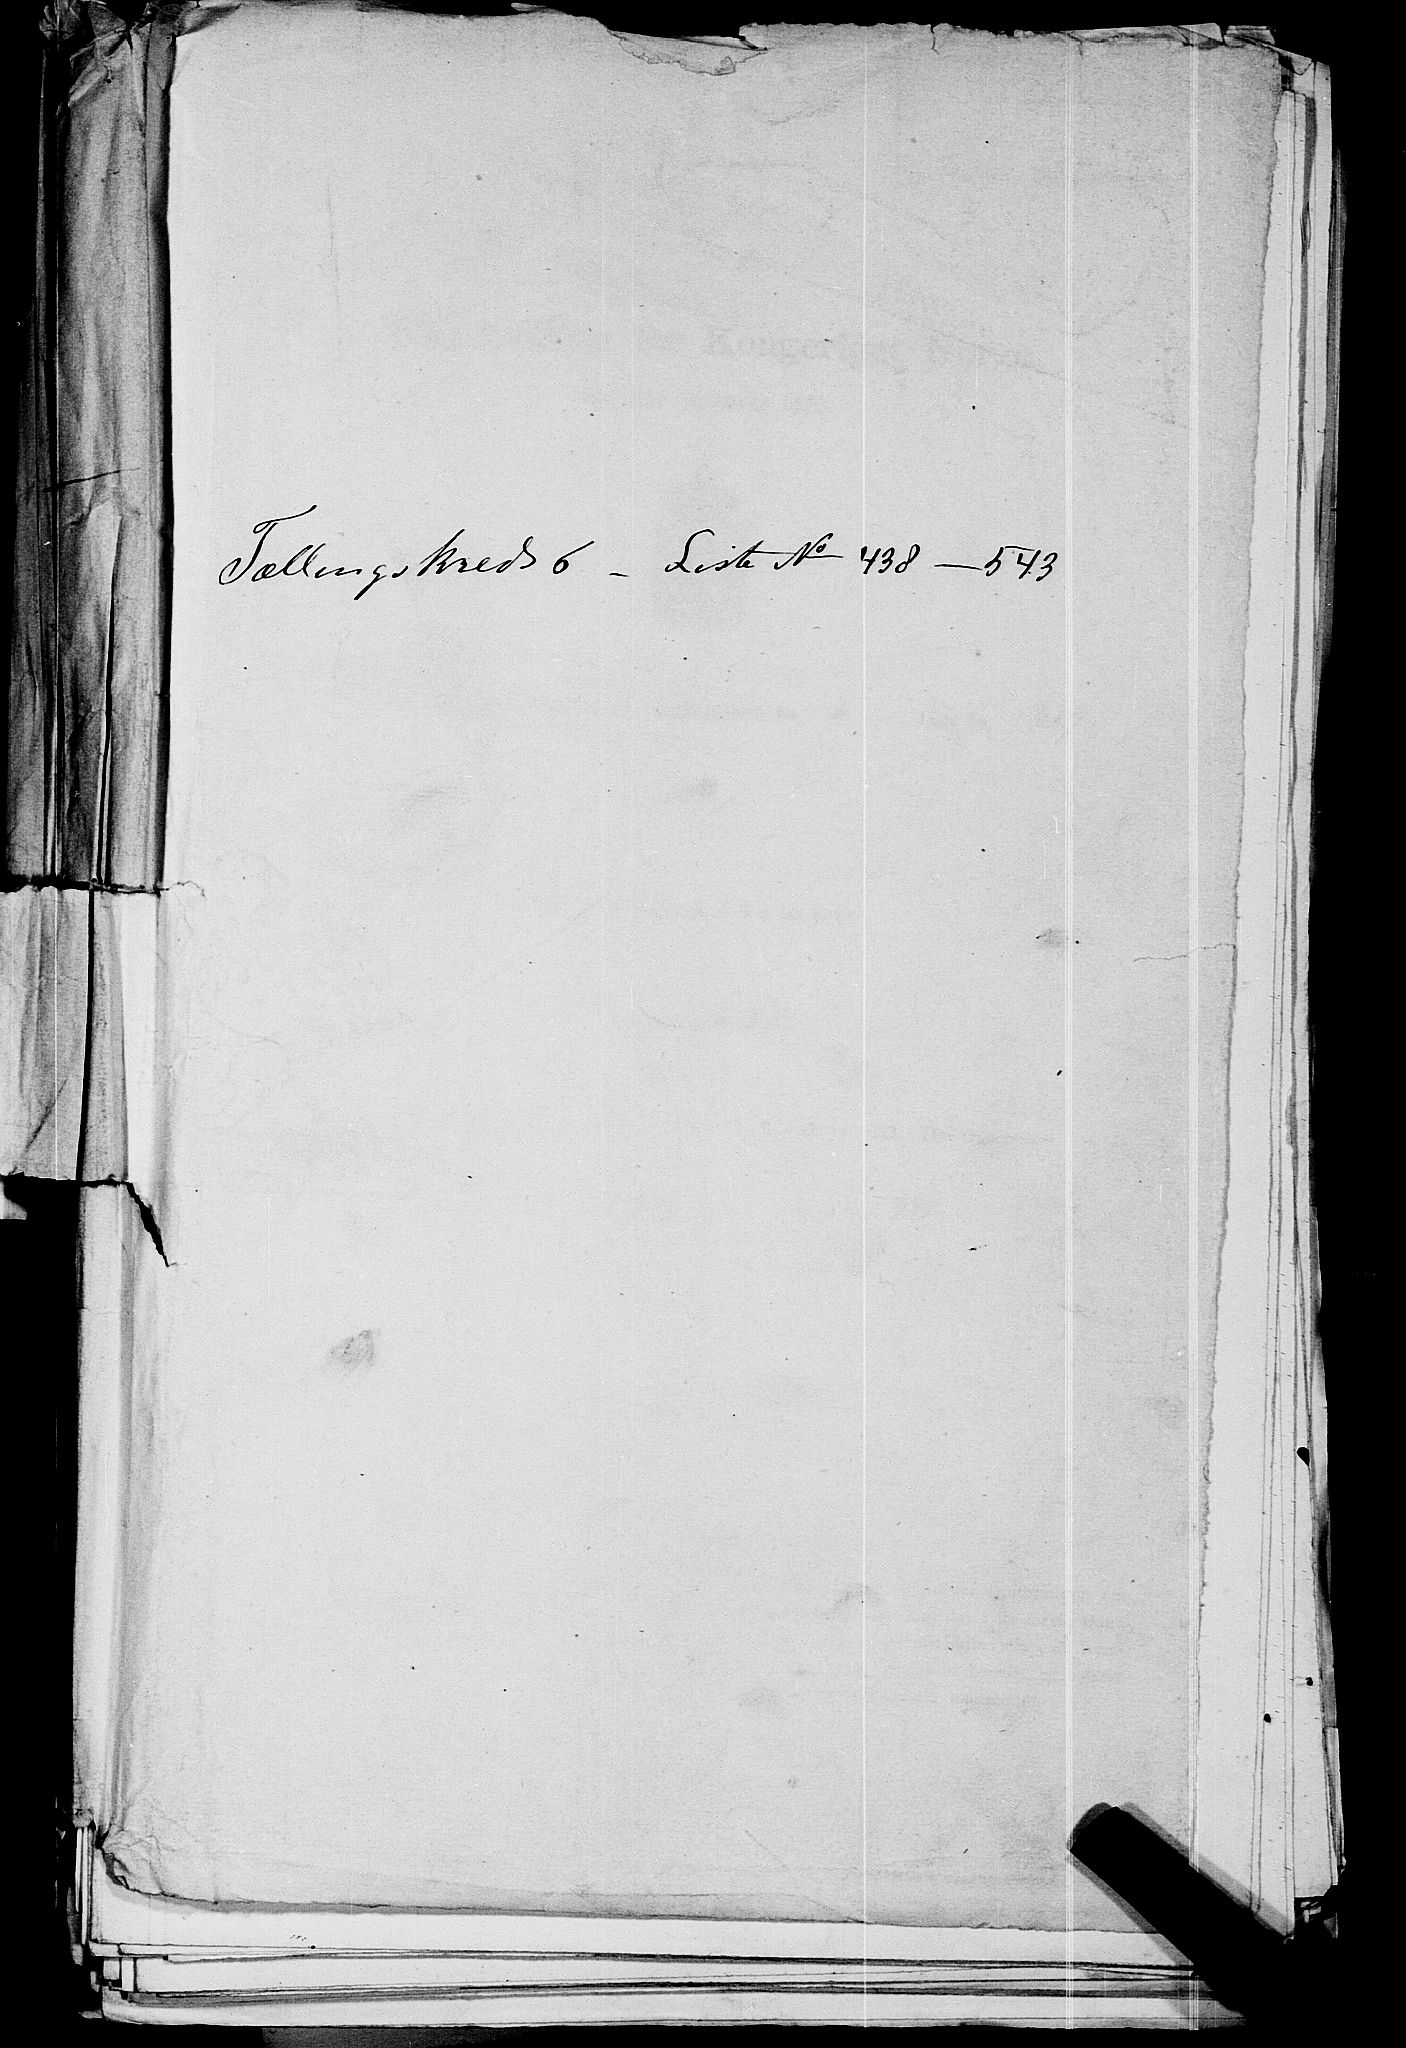 Tællingskreds 6 – Liste No 438 – 543